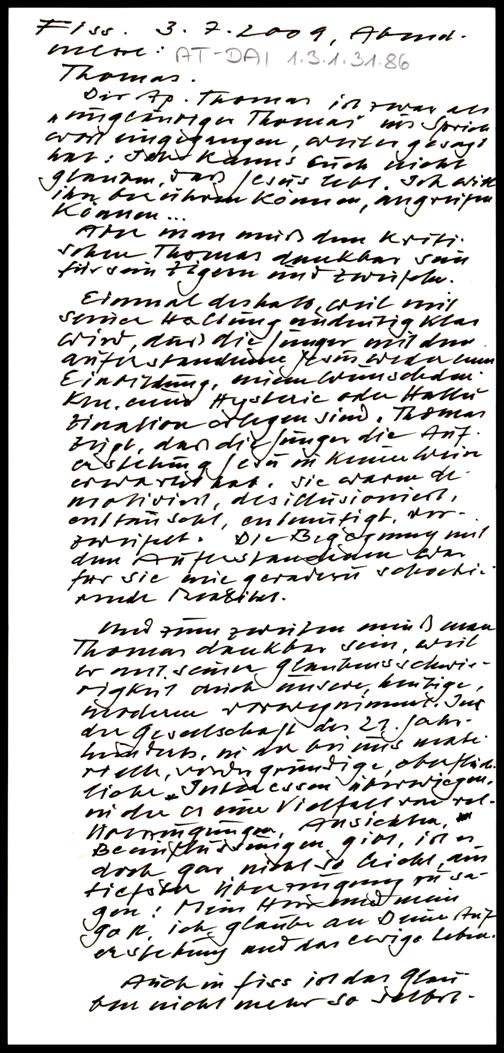 Fiss. 3.7.2009, Abend-
messe: AT-DAI 1.3.1.31.86
Thomas.
Der Ap. Thomas ist zwar als
"ungläubiger Thomas" ins Sprich
wort eingegangen, weil er gesagt
hat: Ich kanns euch nicht
glauben, daß Jesus lebt. Ich will
ihn berühren können, angreifen
können...
Aber man muß dem kriti-
schen Thomas dankbar sein
für sein Zögern und Zweifeln.
Einmal deshalb, weil mit
seiner Haltung eindeutig klar
wird, daß die Jünger mit dem
auferstandenen Jesus weder einer
Einbildung, einem Wunschden-
ken, einer Hysterie oder Hallu
zination erlegen sind. Thomas
zeigt, daß die Jünger die Auf-
erstehung Jesu in keiner Weise
erwartet hat. Sie waren de-
motiviert, desillusioniert,
enttäuscht, entmutigt, ver-
zweifelt. Die Begegnung mit
dem Auferstandenen war
für sie eine geradezu schockie-
rende Realität.
Und zum zweiten muß man
Thomas dankbar sein, weil
er mit seiner Glaubensschwie-
rigkeit auch unsere, heutige,
moderne vorwegnimmt. In
der Gesellschaft des 21. Jahr-
hunderts, in der bei uns mate-
rielle, vordergründige, oberfläch-
liche Interessen überwiegen,
in der es eine Vielfalt von
Überzeugungen, Ansichten,
Beeinflussungen gibt, ist es
doch gar nicht so leicht, aus
tiefster Überzeugung zu sa-
gen: Mein Herr und mein
Gott, ich glaube an Deine Auf
erstehung und das ewige Leben.
Auch in Fiss ist das Glau
ben nicht mehr so selbst-